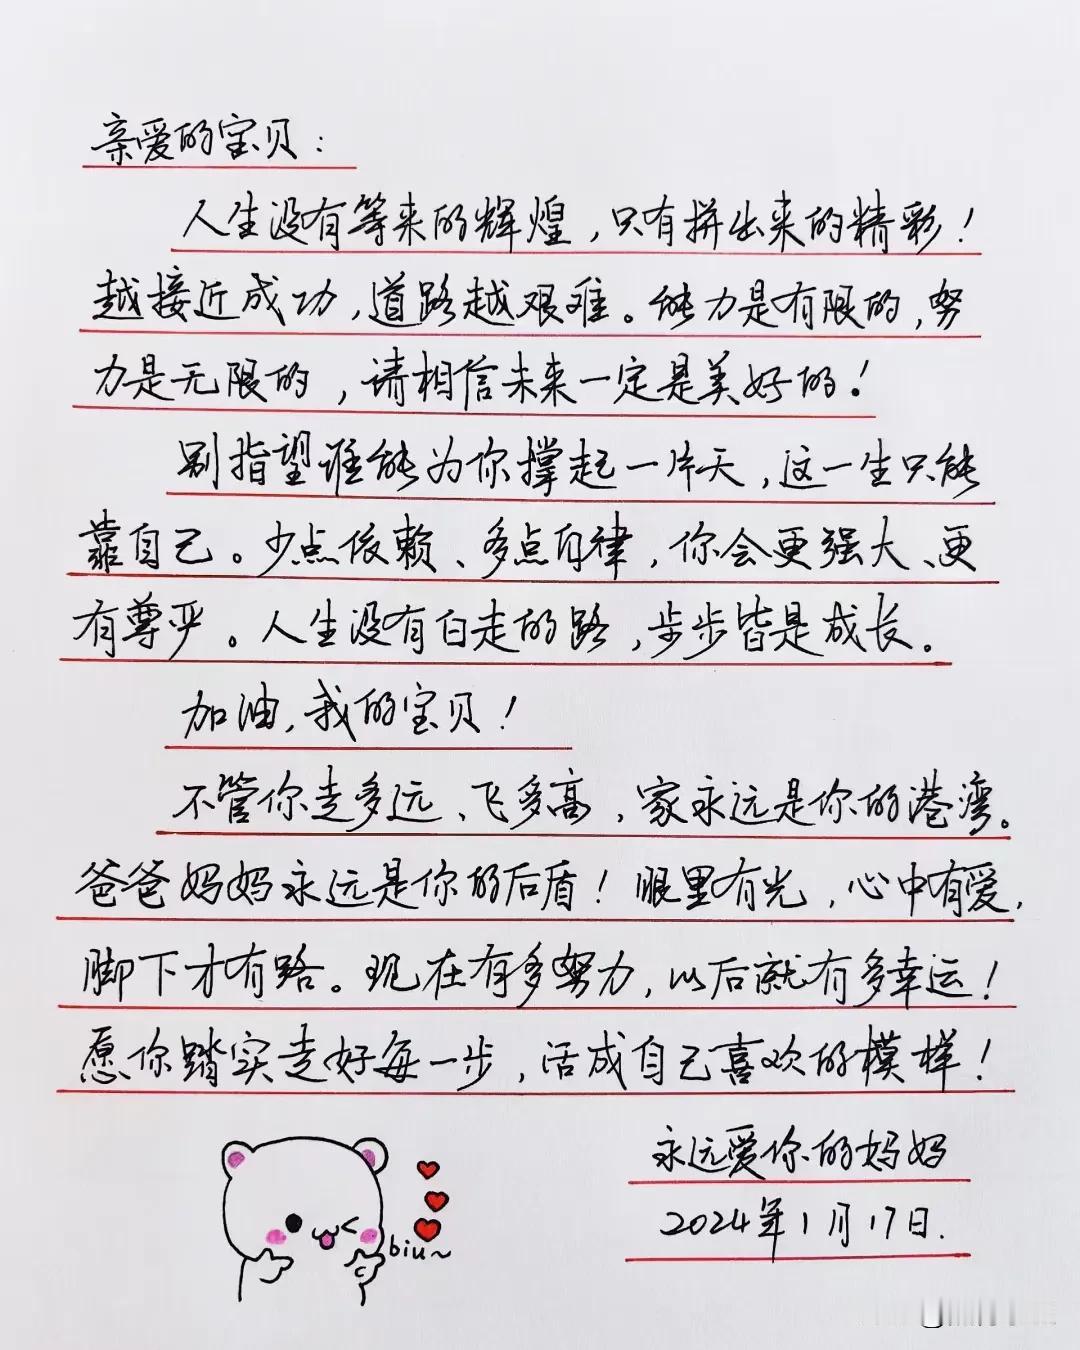 亲爱的宝贝：
人生没有等来的辉煌，只有拼出来的精彩！
越接近成功，道路越艰难。能力是有限的，努
力是无限的，请相信未来一定是美好的！
别指望谁能为你撑起一片天，这一生只能
靠自己。少点依赖、多点自律，你会更强大、更
有尊严。人生没有白走的路，步步皆是成长。
加油，我的宝贝！
不管你走多远、飞多高，家永远是你的港湾。
爸爸妈妈永远是你的后盾！眼里有光，心中有爱，
脚下才有路。现在有多努力，以后就有多幸运！
愿你踏实走好每一步，活成自己喜欢的模样！
永远爱你的妈妈
2024年1月17日.
biu~